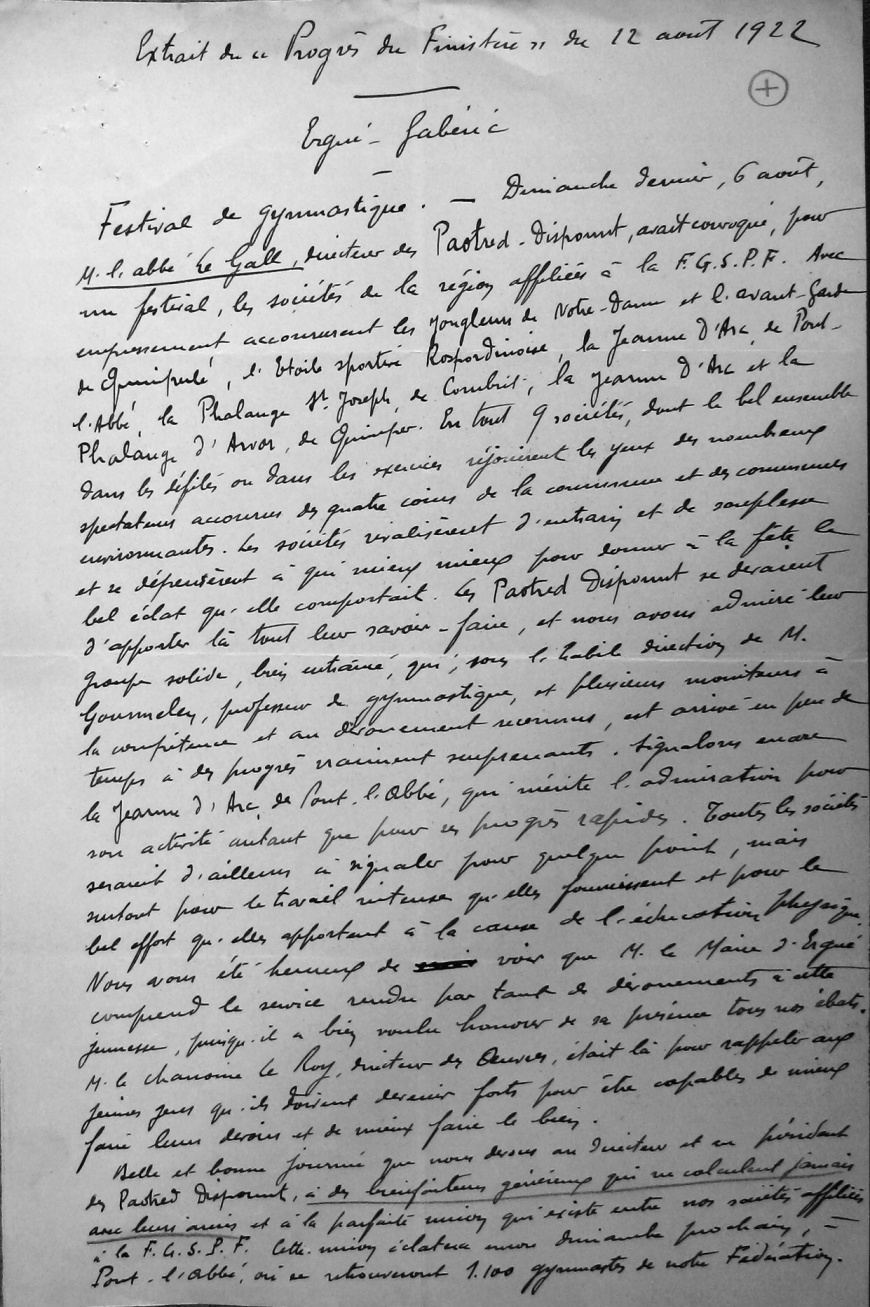 Extrait du « Progrès du Finistère » du 12 août 1922
+
Ergué-Gabéric
Festival de gymnastique. — Dimanche dernier, 6 août,
M. l'abbé Le Gall, directeur des Paotred-Dispount, avait convoqué, pour
un festival, les sociétés de la région affiliées à la F.G.S.P.F. Avec
empressement accoururent les Jongleurs de Notre-Dame et l'avant-Garde
de Quimperlé, l'Etoile sportive Rospordinoise, la Jeanne d'Arc, de Pont-
l'Abbé, la Phalange St Joseph, de Combrit, la Jeanne d'Arc et la
Phalange d'Arvor, de Quimper. En tout 9 sociétés, dont le bel ensemble
dans les défilés ou dans les exercices réjouirent les yeux des nombreux
spectateurs accourus des quatre coins de la commune et des communes
environnantes. Les sociétés rivalisèrent d'entrain et de souplesse
et se dépensèrent à qui mieux mieux pour donner à la fête le
bel éclat qu'elle comportait. Les Paotred Dispount se devaient
d'apporter là tout leur savoir-faire, et nous avons admiré leur
groupe solide, bien entraîné, qui, sous l'habil direction de M.
Gourmelen, professeur de gymnastique, et plusieurs moniteurs à
la compétence et au dévouement reconnus, est arrivé en peu de
temps à des progrès vraiment surprenants. Signalons encore
la Jeanne d'Arc, de Pont-l'Abbé, qui mérite l'admiration pour
son activité autant que pour ses progrès rapides. Toutes les sociétés
seraient d'ailleurs à signaler pour quelque point, mais
surtout pour le travail intense qu'elles fournissent et pour le
bel effort qu'elles apportent à la cause de l'éducation physique.
Nous avons été heureux de voir que M. le Maire d'Ergué
comprend le service rendu par tant de dévouements à cette
jeunesse, puisqu'il a bien voulu honorer de sa présence tous nos ébats.
M. le chanoine Le Roy, directeur des Œuvres, était là pour rappeler aux
jeunes gens qu'ils doivent devenir forts pour être capables de mieux
faire leurs devoirs et de mieux faire le bien.
Belle et bonne journée que nous devons au directeur et au président
des Paotred Dispount, à des bienfaiteurs généreux qui ne calculent jamais
avec leurs amis et à la parfaite union qui existe entre nos sociétés affiliées
à la F.G.S.P.F. Cette union éclatera encore dimanche prochain, à
Pont-l'Abbé, où se retrouveront 1.100 gymnastes de notre Fédération.